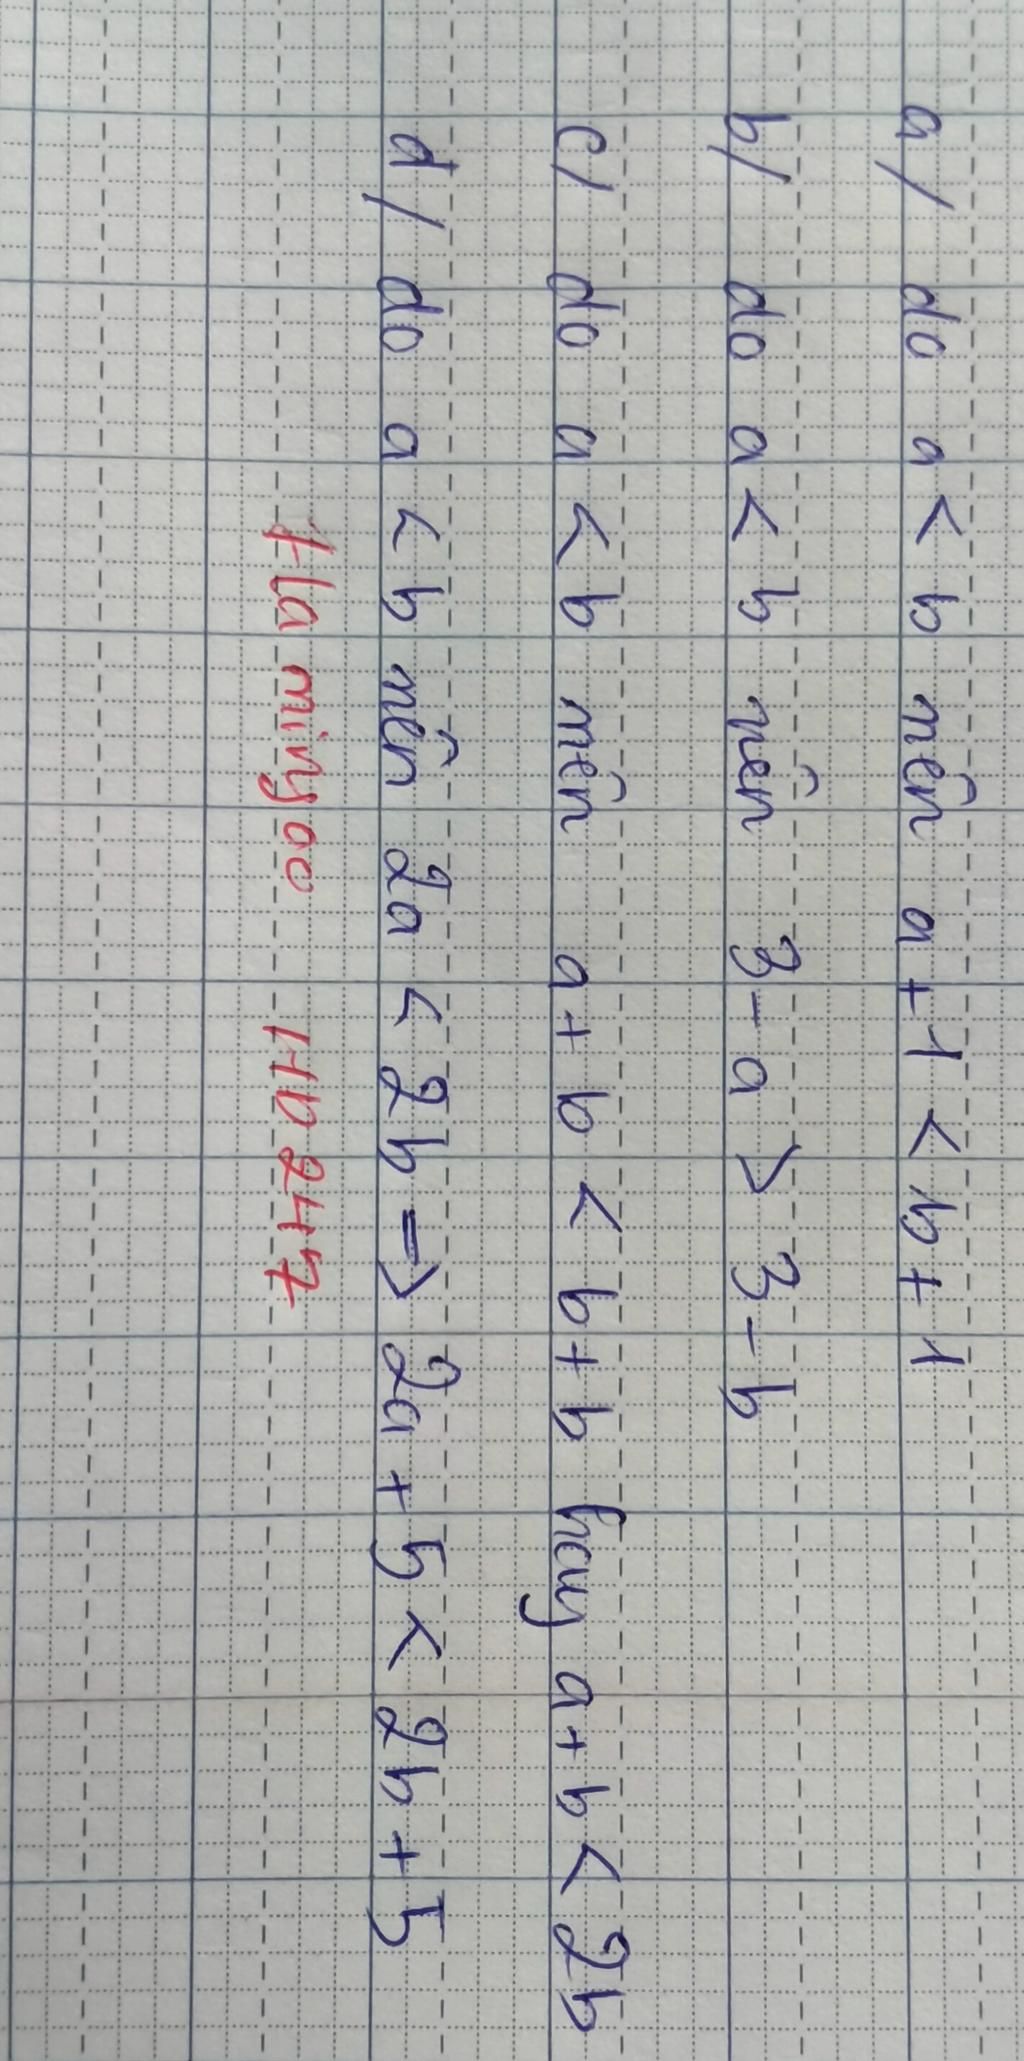 a/ do a < b nên a + 1 < b + 1
b/ do a < b nên 3 - a > 3 - b
c/ do a < b nên a + b < b + b hay a + b < 2b
d/ do a < b nên 2a < 2b => 2a + 5 < 2b + 5
247